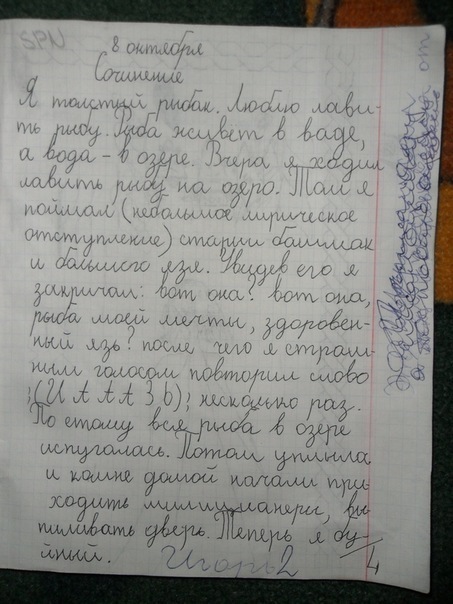 SPN
8 октября
Сочинение
Я толстый рыбак. Люблю лави-
ть рыбу. Рыба живет в ваде,
а вода - в озере. Вчера я ходил
лавить рыбу на озеро. Там я
поймал (небольшое лирическое
отступление) старый башмак
и большого язя. Увидев его я
закричал: вот она? вот она,
рыба моей мечты, здоровен-
ный язь? после чего я страш-
ным голосом повторил слово
;(И А А А З Ь); несколько раз.
По етому вся рыба в озере
испугалась. Потом уплыла
и комне домой начали при-
ходить миллиционеры, вы-
пиливать дверь. Теперь я бу-
йный.
Игорь 2
4
от